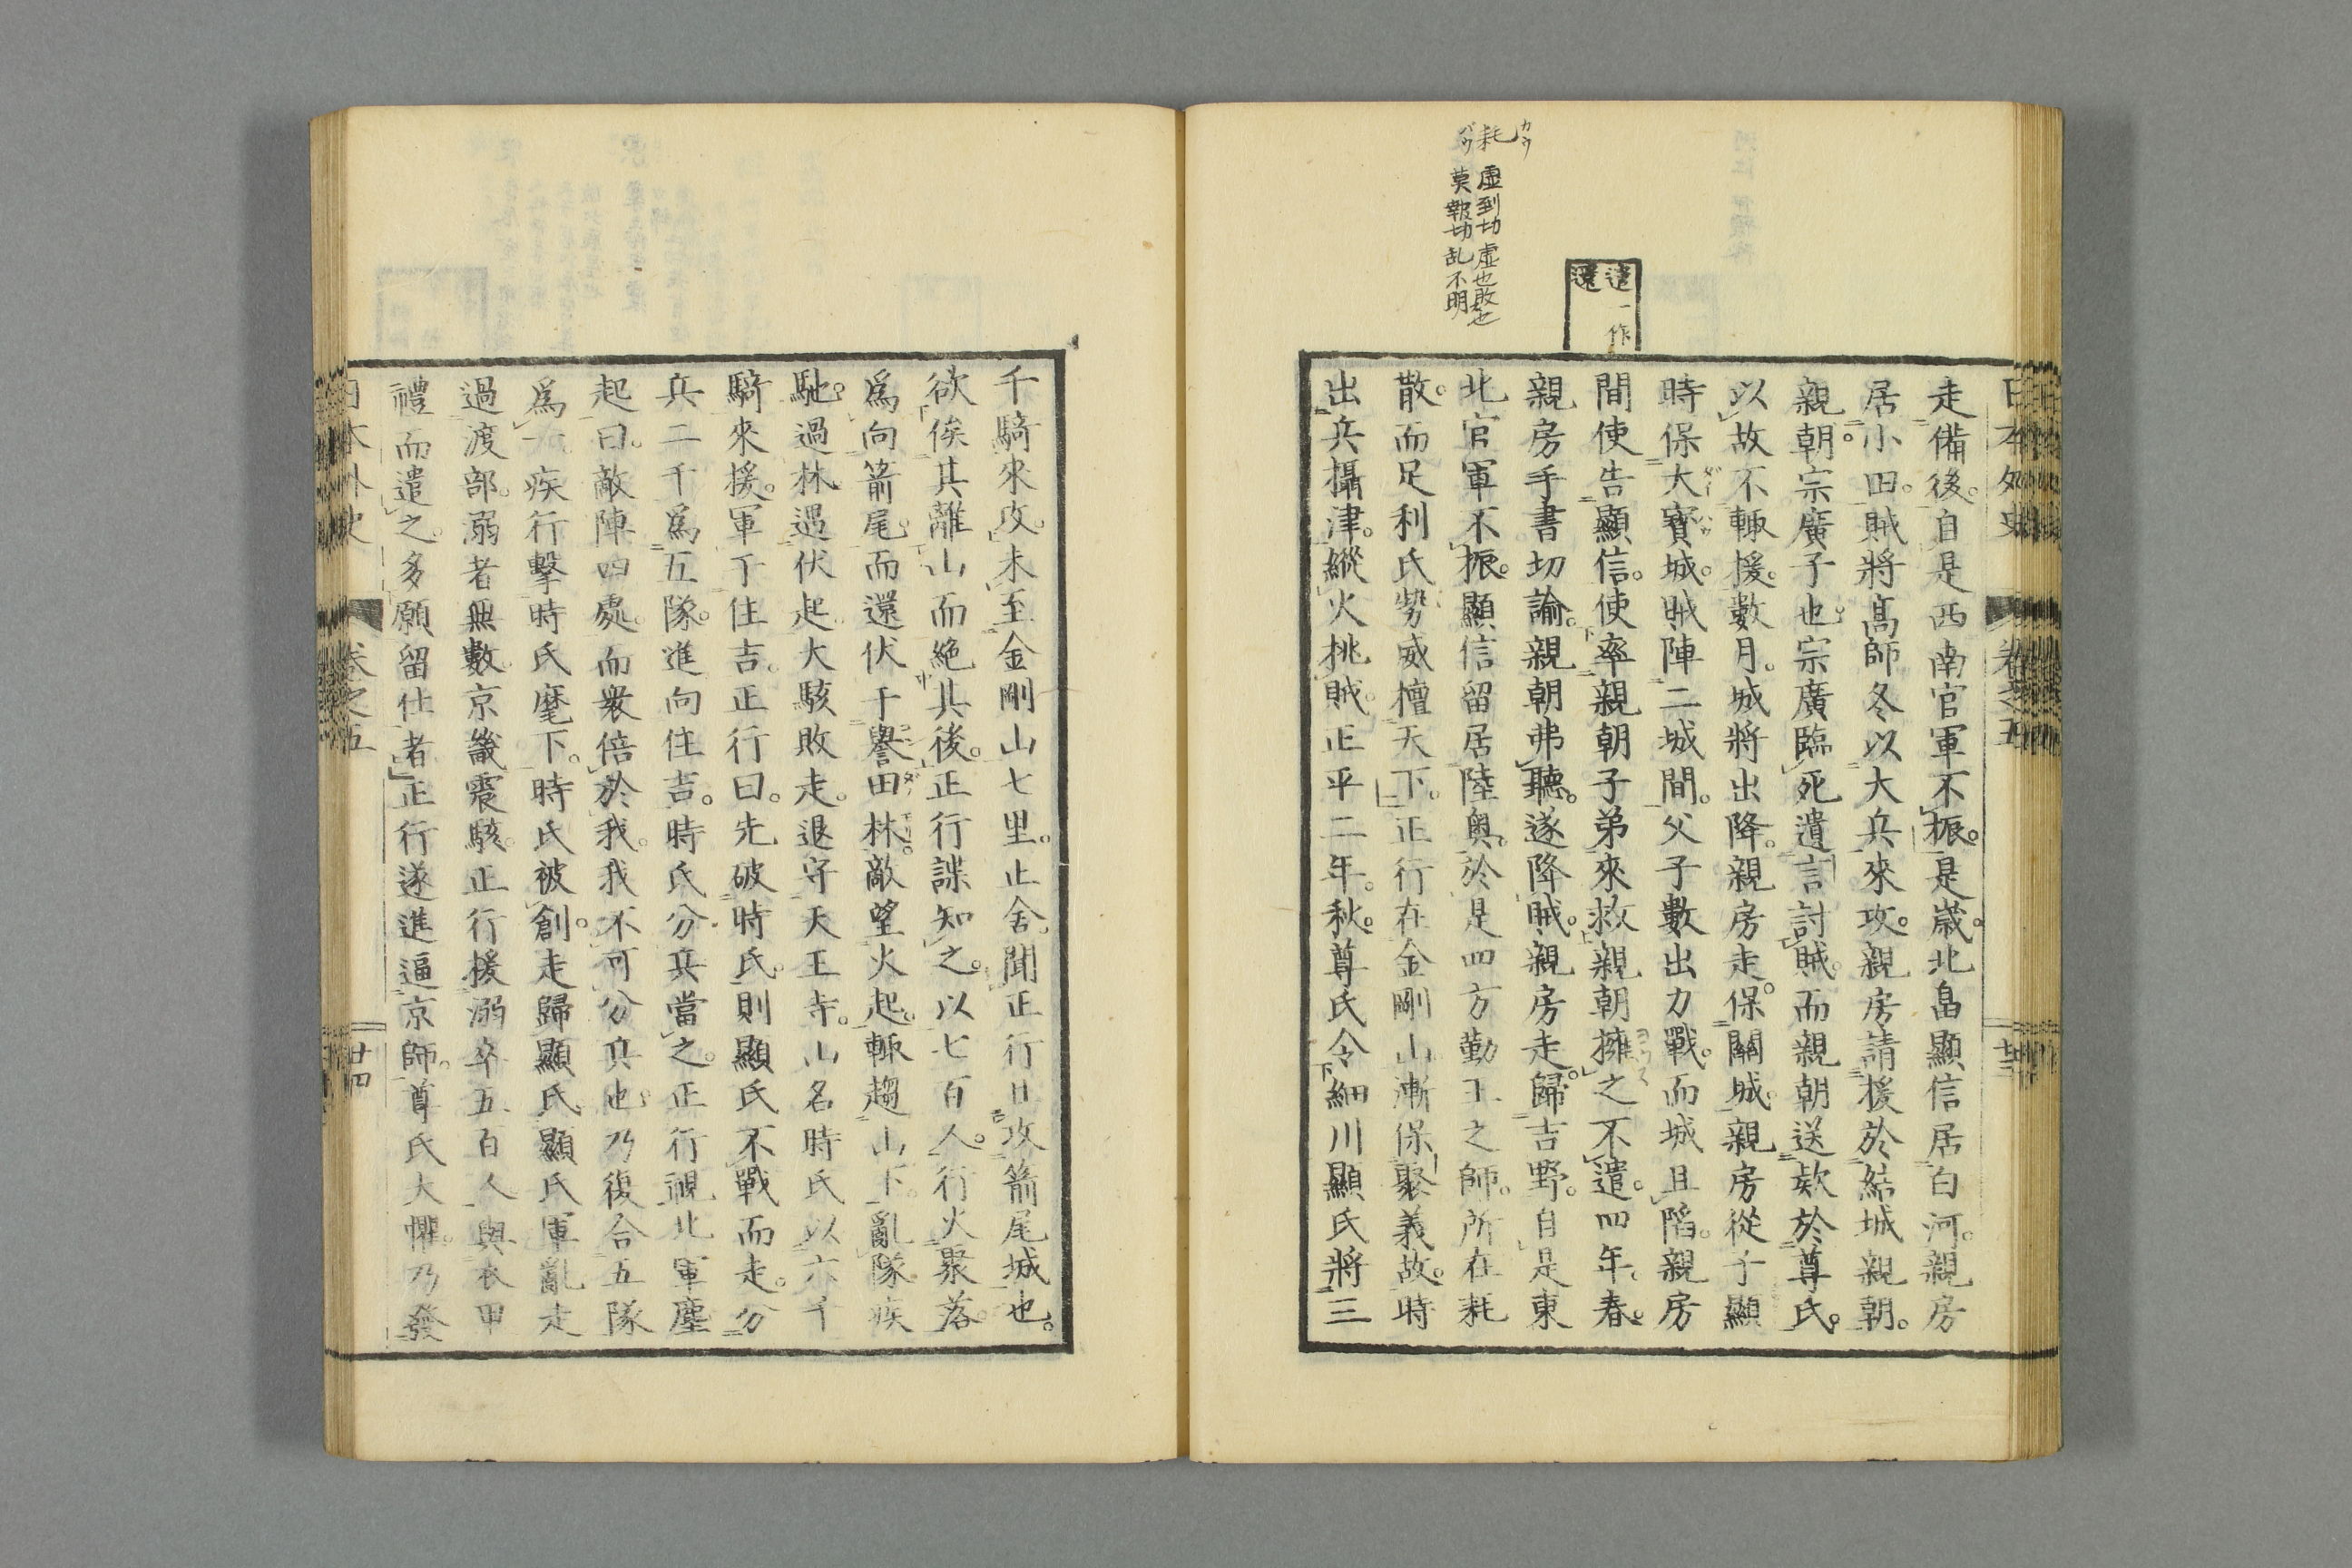 耗 カウ バウ
虚到切虚也敗也
莫報切乱不明
遣一作
還
日本外史 卷之五 廿三
走備後。自是西南官軍不振。是歲。北畠顯信居白河。親房
居小田。賊將高師冬以大兵來攻。親房請援於結城親朝。
親朝。宗廣子也。宗廣臨死遺言討賊。而親朝送款於尊氏。
以故不輙援。數月。城將出降。親房走。保關城。親房從子顯
時保大寳城。賊陣二城間。父子數出力戰。而城且陷。親房
間使告顯信。使率親朝子弟來救。親朝擁之不遣。四年。春。
親房手書切諭。親朝弗聽。遂降賊。親房走。歸吉野。自是東
北官軍不振。顯信留居陸奥。於是四方勤王之師。所在耗
散。而足利氏勢威檀天下。正行在金剛山漸保聚義故。時
出兵攝津。縱火挑賊。正平二年。秋。尊氏令細川顯氏將三
千騎來攻。未至金剛山七里。止舍。聞正行且攻箭尾城也。
欲俟其離山而絶其後。正行諜知之。以七百人。行火聚落。
爲向箭尾。而還伏于譽田林。敵望火起。輙趨山下。亂隊疾
馳。過林。遇伏起。大駭敗走。退守天王寺。山名時氏以六千
騎來援。軍于住吉。正行曰。先破時氏。則顯氏不戰而走。分
兵二千爲五隊。進向住吉。時氏分兵當之。正行視北軍塵
起曰。敵陣四處。而衆倍於我。我不可分兵也。乃復合五隊
爲一。疾行擊時氏麾下。時氏被創。走歸顯氏。顯氏軍亂走
過渡部。溺者無數。京畿震駭。正行援溺卒五百人。與衣甲
禮而遣之。多願留仕者。正行遂進逼京師。尊氏大懼。乃發
日本外史 卷之五 廿四